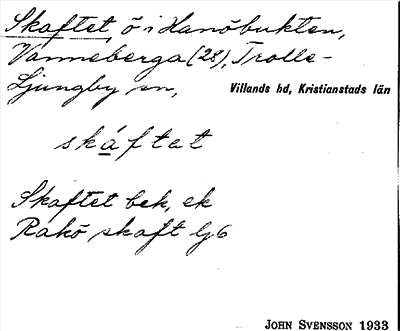 Skaftet, ö i Hanöbukten,
Vanneberga (28), Trolle-
Ljungby sn, Villands hd, Kristianstads län
skáftet
Skaftet bek, ek
Rakö skaft lj 6
JOHN SVENSSON 1933